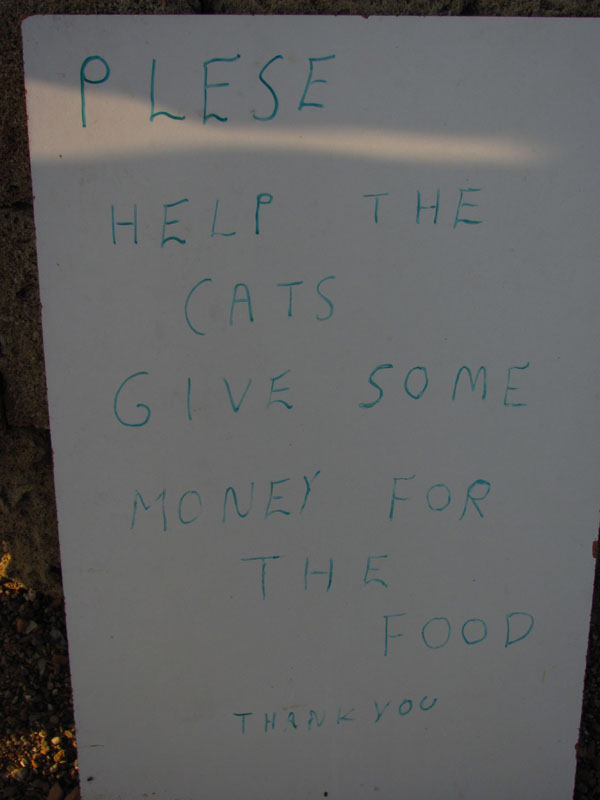 PLESE
HELP THE
CATS
GIVE SOME
MONEY FOR
THE
FOOD
THANK YOU